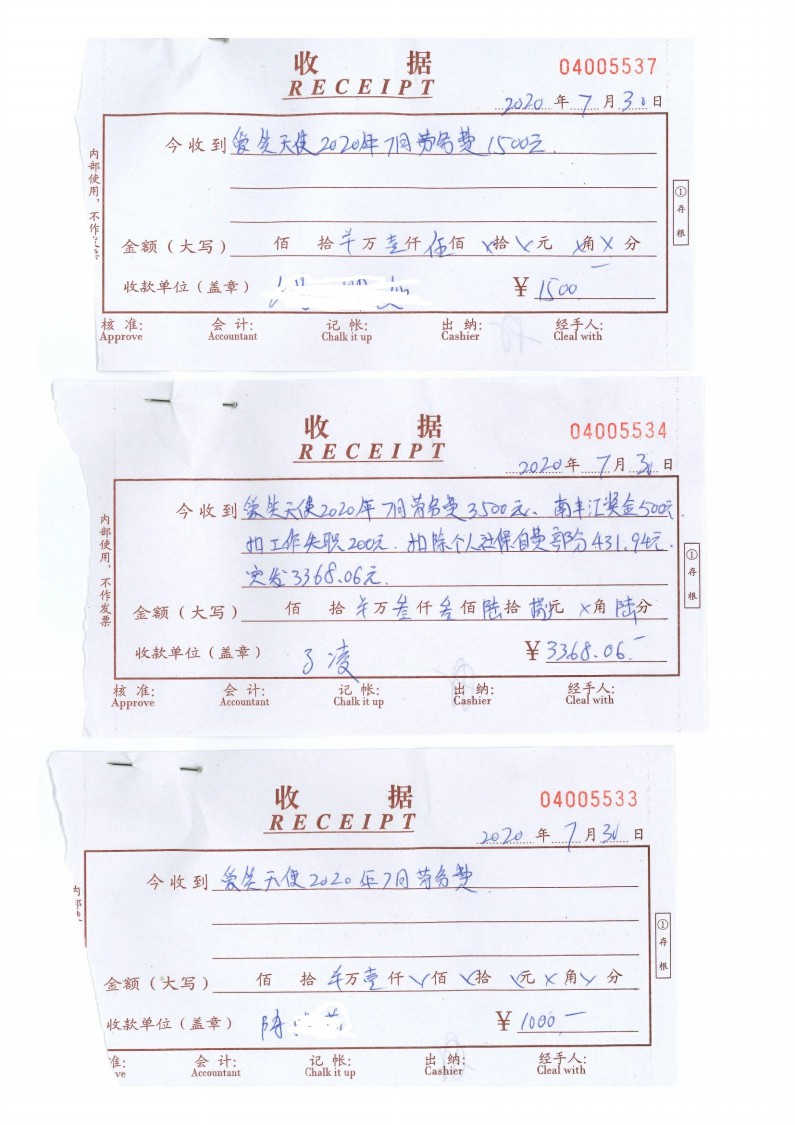 收 据
04005537
RECEIPT
2020 年 7 月 30 日
今收到 爱笑天使2020年7月劳务费1500元
内部使用,不作
① 存根
金额(大写) 佰 拾 ¥ 万 壹 仟 伍 佰 × 拾 × 元 × 角 × 分
收款单位(盖章) ¥ 1500
核 准: 会 计: 记 帐: 出 纳: 经手人:
Approve Accountant Chalk it up Cashier Cleal with
收 据
04005534
RECEIPT
2020 年 7 月 日
今收到 爱笑天使2020年7月劳务费3500元、南丰汇奖金500元.
扣工作失职200元.扣除个人社保自费部分431.94元.
实发3368.06元.
内部使用,不作发票
① 存根
金额(大写) 佰 拾 ¥ 万 叁 仟 叁 佰 陆 拾 捌 元 × 角 陆 分
收款单位(盖章) 凌 ¥ 3368.06.-
核 准: 会 计: 记 帐: 出 纳: 经手人:
Approve Accountant Chalk it up Cashier Cleal with
收 据
04005533
RECEIPT
2020 年 7 月 日
今收到 爱笑天使2020年7月劳务费
① 存根
金额(大写) 佰 拾 ¥ 万 壹 仟 × 佰 × 拾 × 元 × 角 × 分
收款单位(盖章) 陈 ¥ 1000-
准: 会 计: 记 帐: 出 纳: 经手人:
ve Accountant Chalk it up Cashier Cleal with